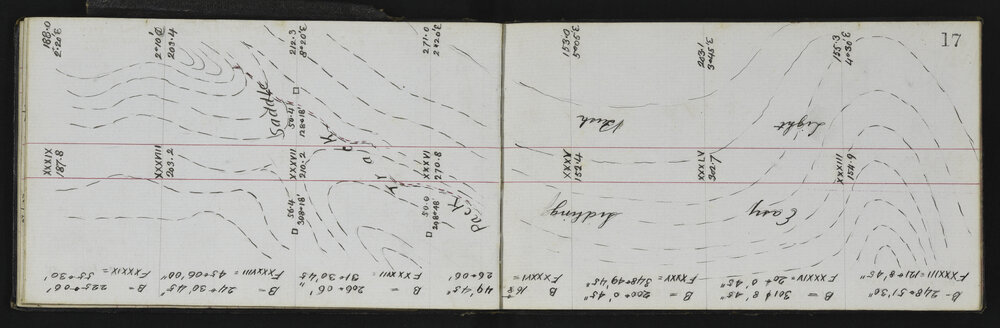 17
188.0
2°20'E
2°10'E
203.4
212.3
8°20'E
271.0
2°20'E
153.0
5°05'E
203.1
3°45'E
155.3
4°30'E
Saddle
50.4
128°18'
Bush
Light
XXXIX
187.8
XXXVIII
203.2
XXXVII
210.2
XXXVI
270.8
XXXV
152.4
XXXIV
202.7
XXXIII
154.9
Pack Track
50.4
308°18'
50.0
208°48'
Sidling
Easy
B = 225°06'
FXXXIX = 55°30'
B = 211°30'45"
FXXXVIII = 45°06'00"
206°06'
FXXXVII = 31°30'45"
49'45"
26°06'
B
FXXXVI =
B = 200°0'45"
FXXXV = 348°49'45"
B = 301°8'45"
FXXXIV = 20°0'45"
B = 248°51'30"
FXXXIII = 121°8'45"